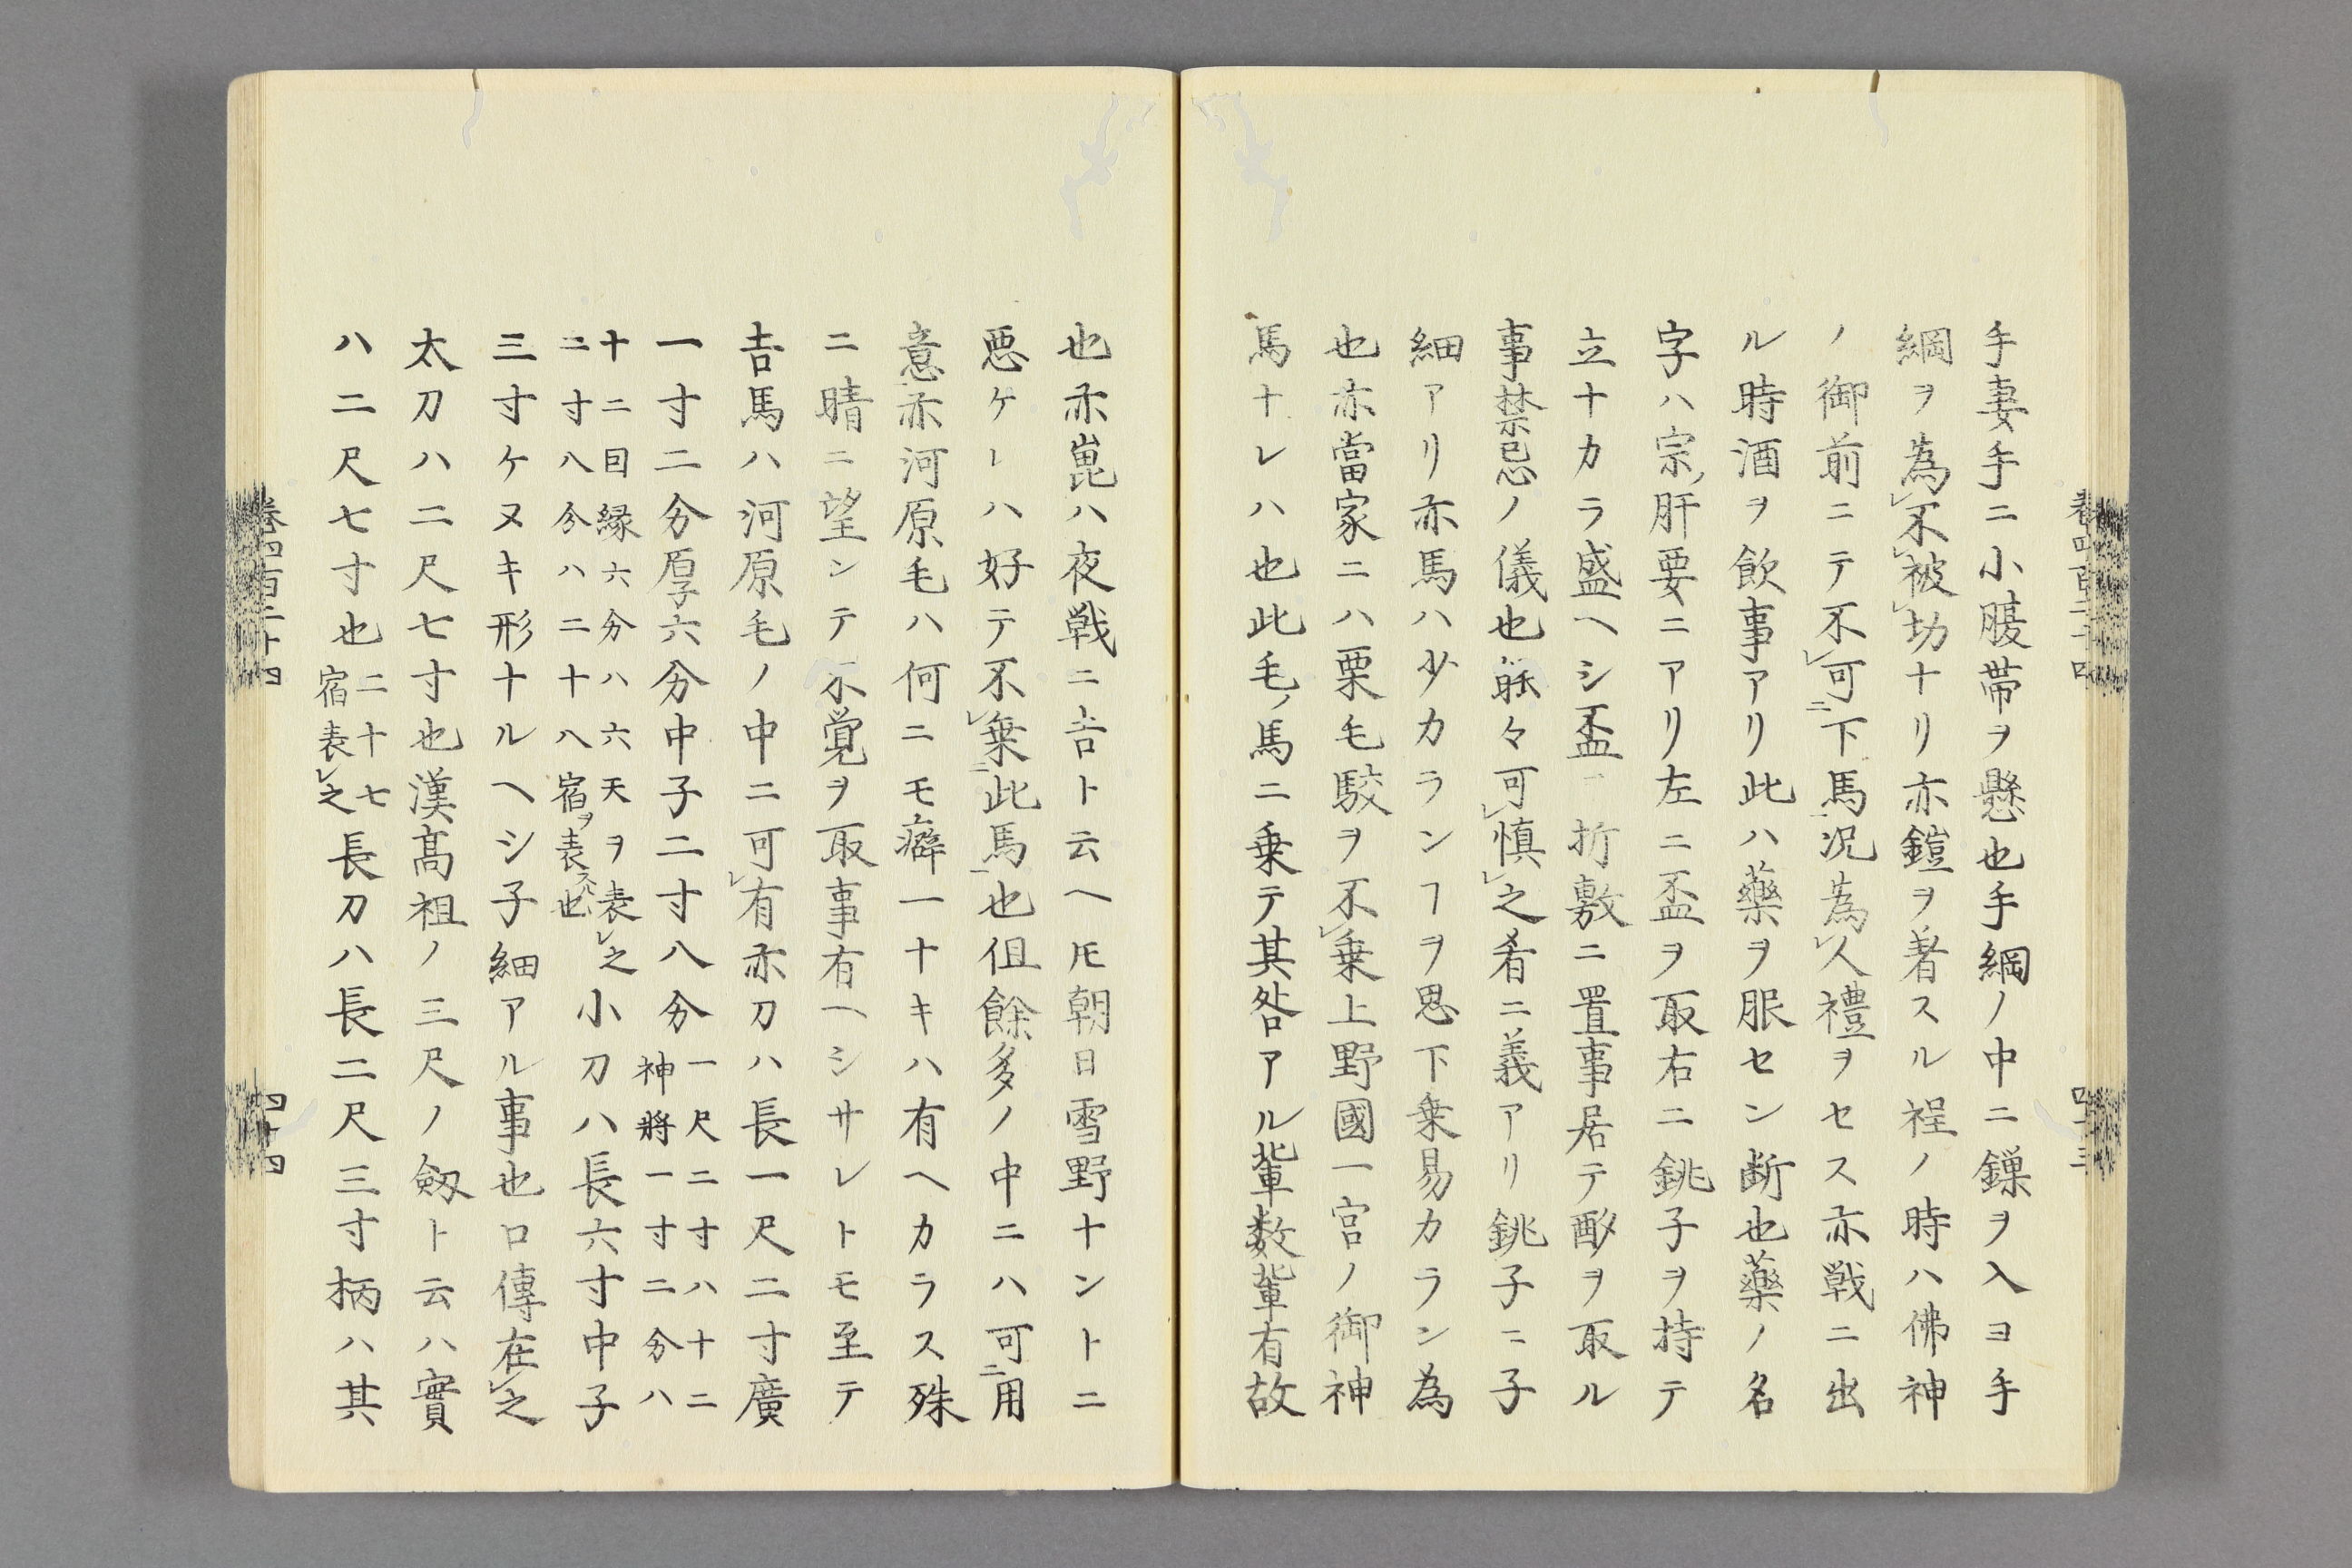 手妻手ニ小腹帯ヲ懸也手綱ノ中ニ鏁ヲ入ヨ手
綱ヲ為レ不レ被レ切ナリ亦鎧ヲ着スル程ノ時ハ佛神
ノ御前ニテ不レ可ニ下馬一況為レ人禮ヲセス亦戦ニ出
ル時酒ヲ飲事アリ此ハ藥ヲ服セン断也藥ノ名
字ハ宗ノ肝要ニアリ左ニ盃ヲ取右ニ銚子ヲ持テ
立ナカラ盛ヘシ盃ヲ折敷ニ置事居テ酌ヲ取ル
事禁忌ノ儀也々可レ慎レ之肴ニ義アリ銚子ニ子
細アリ亦馬ハ少カランヿヲ思下乗易カラン為
也亦當家ニハ栗毛駮ヲ不レ乗上野國一宮ノ御神
馬ナレハ也此毛ノ馬ニ乗テ其咎アル輩数輩有故
也亦崑ハ夜戦ニ吉ト云ヘ𪜈朝日雪野ナントニ
悪ケレハ好テ不レ乗ニ此馬一也但餘多ノ中ニハ可ニ用
意一亦河原毛ハ何ニモ癖一ナキハ有ヘカラス殊
ニ晴ニ望ンテ不覚ヲ取事有ヘシサレトモ至テ
吉馬ハ河原毛ノ中ニ可レ有亦刀ハ長一尺二寸廣
一寸二分厚六分中子二寸八分 一尺二寸八十二 神將一寸二分ハ
十二因縁六分ハ六天ヲ表レ之 二寸八分ハ二十八宿ヲ表ス也 小刀ハ長六寸中子
三寸ケヌキ形ナルヘシ子細アル事也口傳在レ之
太刀ハ二尺七寸也漢髙祖ノ三尺ノ劔ト云ハ實
ハ二尺七寸也 二十七 宿表レ之 長刀ハ長二尺三寸柄ハ其
卷四百二十四
四十四